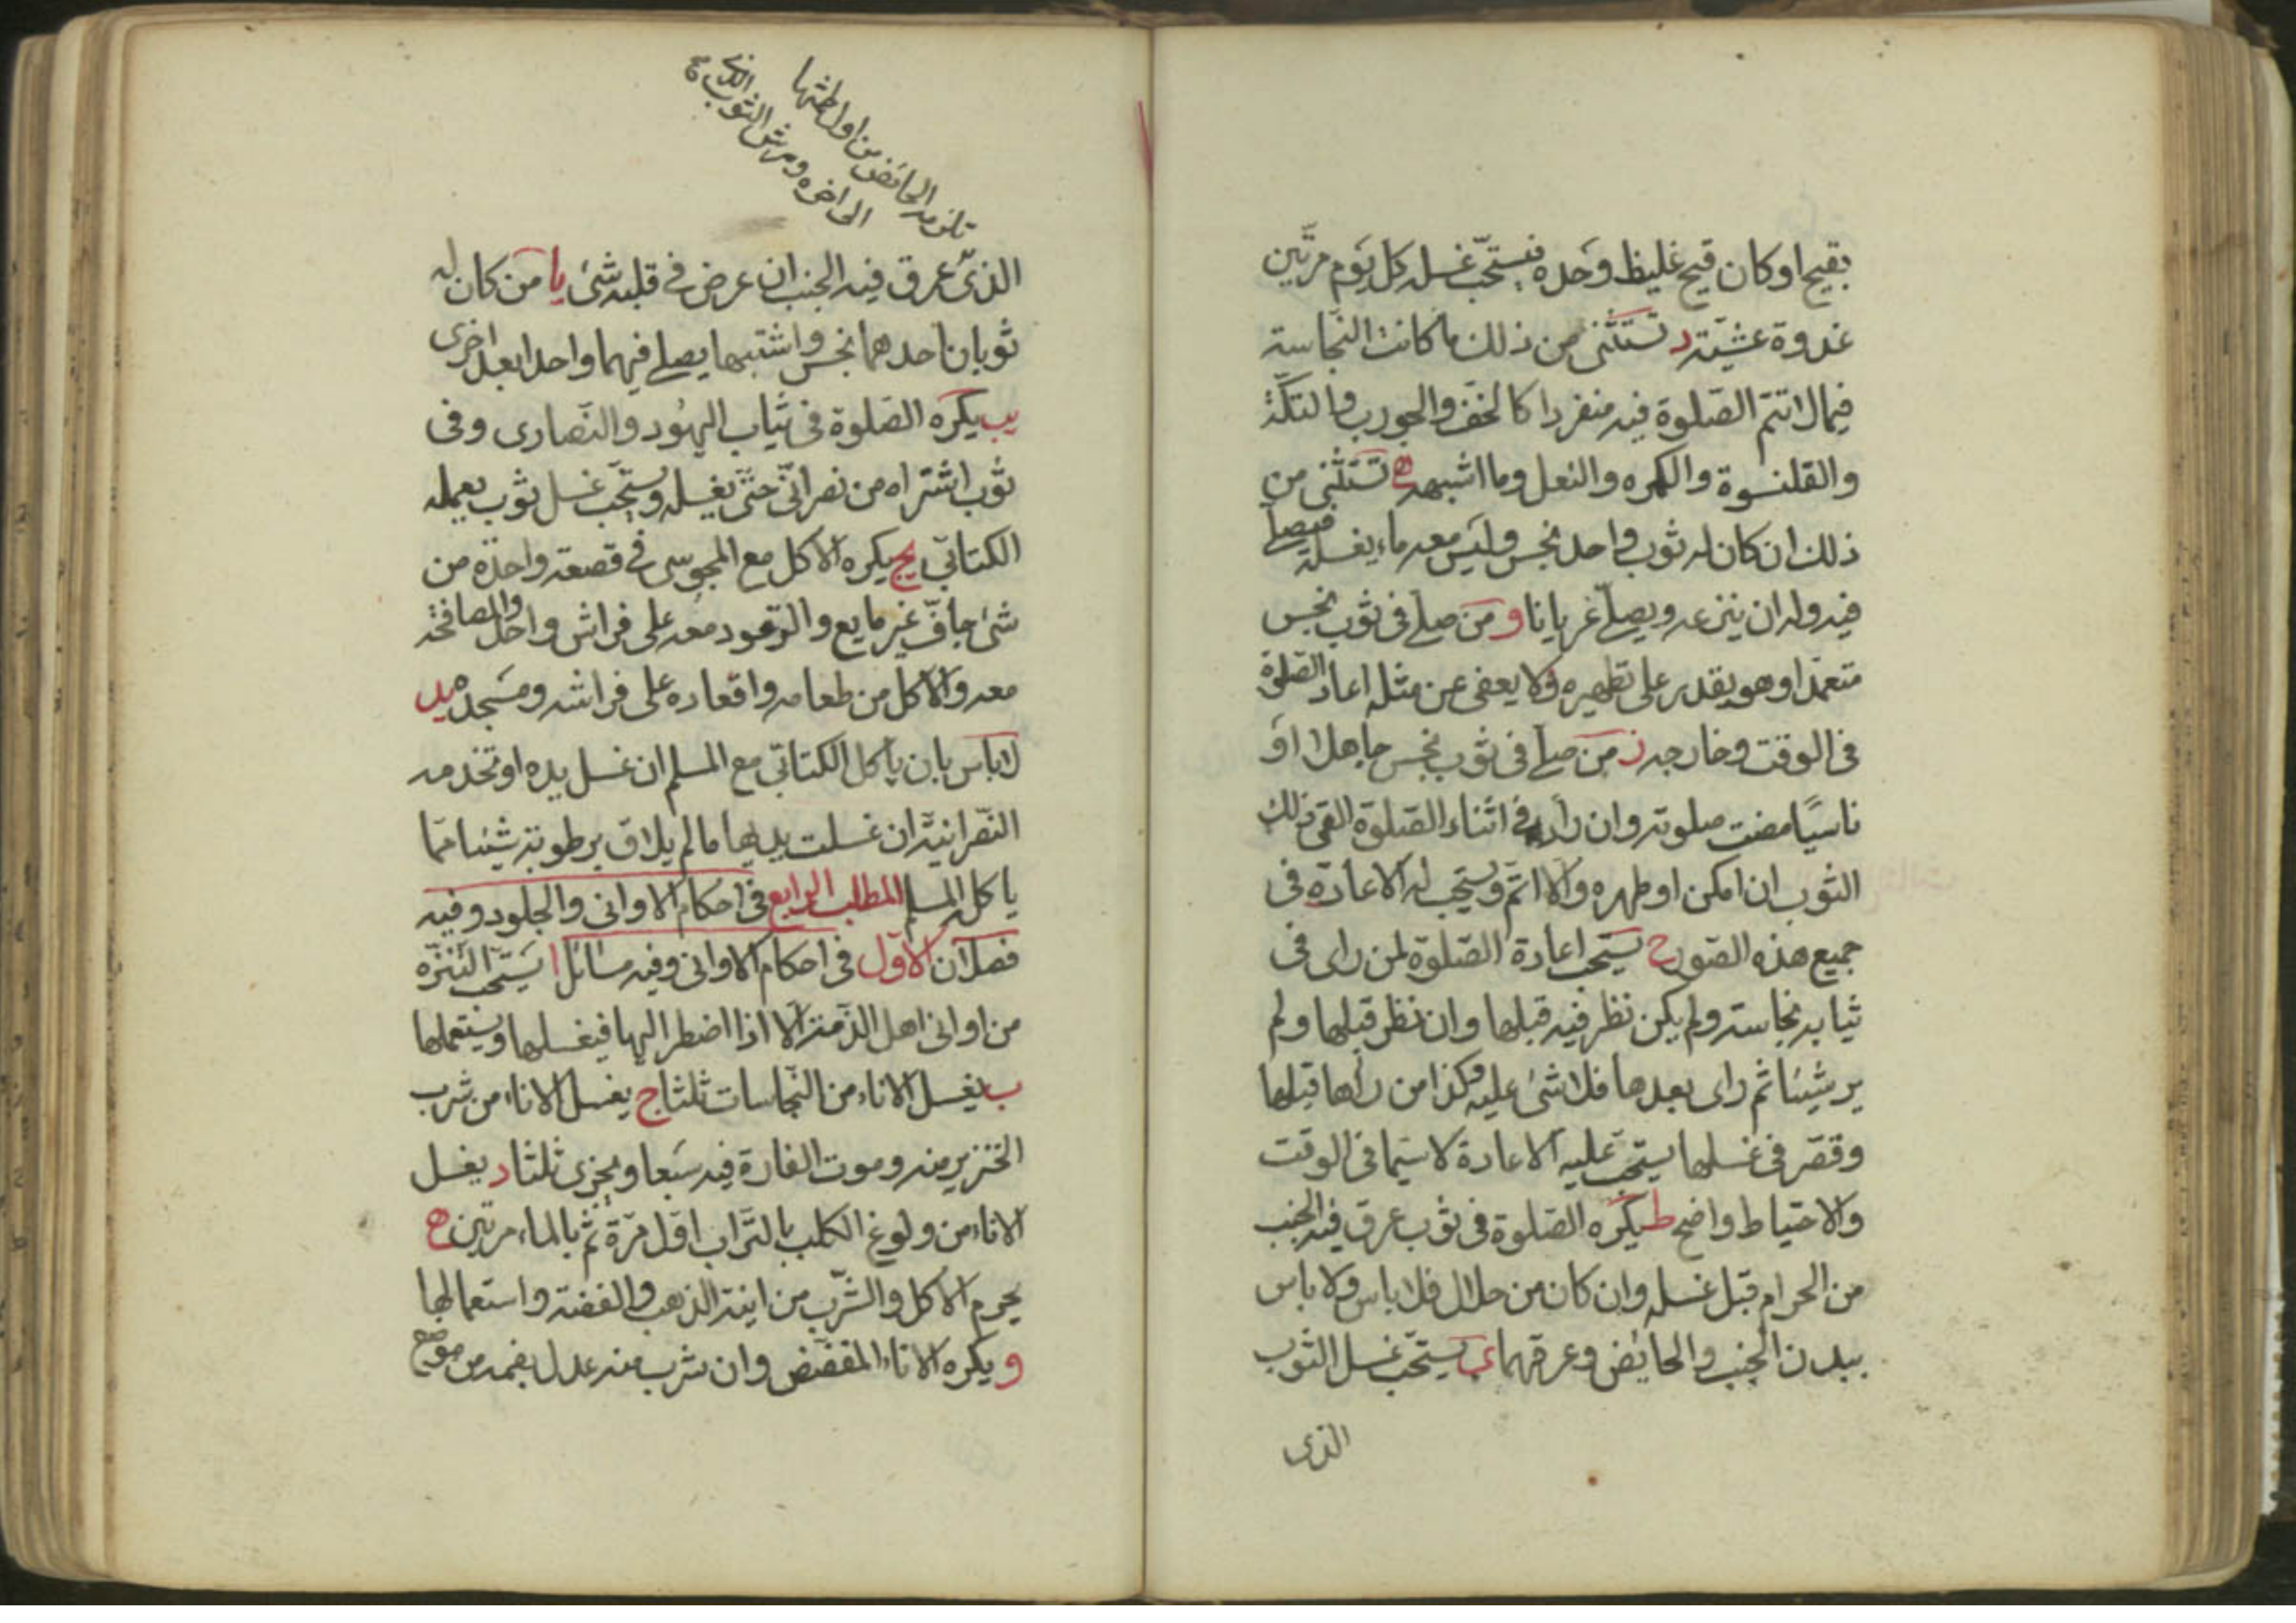 بقيح او كان قيح غليظ وحده فيستحب غسله كل يوم مرتين
غدوة عشية د تستثنى من ذلك ما كانت النجاسة
فيما لا تتم الصلوة فيه منفردا كالخف والجورب والتكة
والقلنسوة والكمره والنعل وما اشبهه ه تستثنى من
ذلك ان كان له ثوب واحد نجس وليس معه ماء يغسله فيصلى
فيه وله ان ينزعه ويصلى عريانا و من صلى فى ثوب نجس
متعمدا وهو يقدر على تطهيره ولا يعفى عن مثله اعاد الصلوة
فى الوقت وخارجه ز من صلى فى ثوب نجس جاهلا او
ناسيا مضت صلوته وان رآه فى اثناء الصلوة القى ذلك
الثوب ان امكن او طهره والا اتم ويستحب له الاعادة فى
جميع هذه الصور ح يستحب اعادة الصلوة لمن راى فى
ثيابه نجاسة ولم يكن نظر فيه قبلها وان نظر قبلها ولم
ير شيئا ثم راى بعدها فلا شئ عليه وكذا من رآها قبلها
وقصر فى غسلها يستحب عليه الاعادة لا سيما فى الوقت
والاحتياط واضح ط يكره الصلوة فى ثوب عرق فيه الجنب
من الحرام قبل غسله وان كان من حلال فلا باس ولا باس
ببدن الجنب والحائض وعرقهما ى يستحب غسل الثوب
الذى
الحائض من اولطثها
الى اخره ومرش الثوب الذى
الذى عرق فيه الجنب ان عرض فى قلبه شئ يا من كان له
ثوبان احدهما نجس واشتبها يصلى فيهما واحدا بعد اخرى
يب يكره الصلوة فى ثياب اليهود والنصارى وفى
ثوب اشتراه من نصرانى حتى يغسله ويستحب غسل ثوب يعمله
الكتابى يج يكره الاكل مع المجوسى فى قصعة واحدة من
شئ جاف غير مايع والرقود معه على فراش واحد والمصافحة
معه والاكل من طعامه واقعاده على فراشه ومسجده يد
لا باس بان ياكل الكتابى مع المسلم ان غسل يده او تخدمه
النصرانية ان غسلت يديها ما لم يلاق برطوبة شيئا مما
ياكل المسلم المطلب الرابع فى احكام الاوانى والجلود وفيه
فصلان الاول فى احكام الاوانى وفيه مسائل ا يستحب التنزه
من اوانى اهل الذمة الا اذا اضطر اليها فيغسلها ويستعملها
ب يغسل الاناء من النجاسات ثلثا ج يغسل الاناء من شرب
الخنزير منه وموت الفارة فيه سبعا ويجزى ثلثا د يغسل
الاناء من ولوغ الكلب بالتراب اول مرة ثم بالماء مرتين ه
يحرم الاكل والشرب من انية الذهب والفضة واستعمالها
و يكره الاناء المفضض وان شرب منه عدل بفمه من موضع